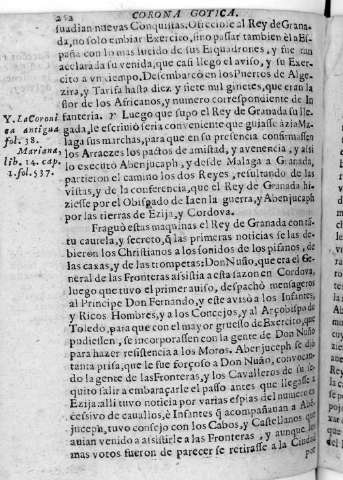 252 CORONA GOTICA.
suadian nuevas Conquistas. Ofreciole al Rey de Grana-
da, no solo embiar Exercito, sino passar tambien à Es-
paña con lo mas lucido de sus Esquadrones, y fue tan
acelarada su venida, que casi llego el aviso, y su Exer-
cito a un tiempo. Desembarcò en los Puertos de Alge-
zira, y Tarifa hasta diez y siete mil ginetes, que eran la
flor de los Africanos, y numero correspondiente de In
fanteria. Y Luego que supo el Rey de Granada su lle-
gada, le escriuiò seria conveniente que guiasse àzia Ma-
laga sus marchas, para que en su presencia confirmassen
los Arraezes los pactos de amistad, y avenencia, y assi
lo executò Abenjucaph, y desde Malaga a Granada,
partieron el camino los dos Reyes, resultando de las
vistas, y de la conferencia, que el Rey de Granada hi-
ziesse por el Obispado de Iaen la guerra, y Abenjucaph
por las tierras de Ezija, y Cordova.
Y. La Coroni
ca antigua
fol. 38.
Mariana,
lib. 14. cap.
1. fol. 537.
Fraguò estas maquinas el Rey de Granada con tā-
ta cautela, y secreto, q̄ las primeras noticias se las de-
bieron los Christianos a los sonidos de los pifanos, de
las caxas, y de las trompetas; Don Nuño, que era Ge-
neral de las Fronteras asistia a esta sazon en Cordova,
luego que tuvo el primer auiso, despachò mensageros
al Principe Don Fernando, y este avisò a los Infantes,
y Ricos Hombres, y a los Concejos, y al Arçobispo de
Toledo, para que con el mayor gruesso de Exercito, que
pudiessen, se incorporassen con la gente de Don Nuño
para hazer resistencia a los Moros. Aberjuceph se diò
tanta prisa, que le fue forçoso a Don Nuño, convocan-
do la gente de las Fronteras, y los Cavalleros de su se-
quito salir a embaraçarle el passo antes que llegasse a
Ezija: alli tuvo noticia por varias espias del numero ex-
cessivo de cauallos, è Infantes q̄ acompañauan a Abē-
juceph, tuvo consejo con los Cabos, y Castellanos que
auian venido a asistirle a las Fronteras, y aunque los
mas votos fueron de parecer se retirasse a la Ciudad
por